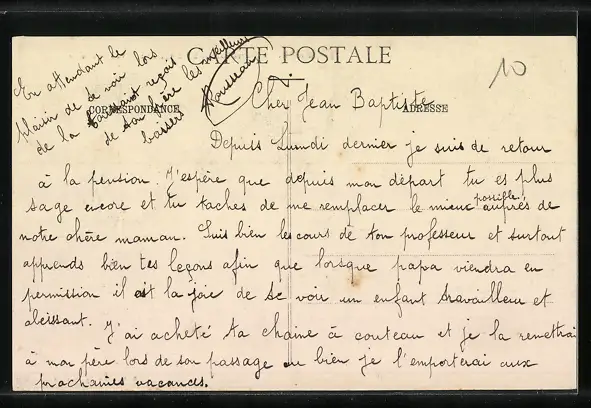 CARTE POSTALE
CORRESPONDANCE
ADRESSE
10
Cher Jean Baptiste
Depuis Lundi dernier je suis de retour
à la pension. J'espère que depuis mon départ tu es plus
sage encore et tu taches de me remplacer le mieux possible auprès de
notre chère maman. Suis bien les cours de ton professeur et surtout
apprends bien tes leçons afin que lorsque papa viendra en
permission il ait la joie de te voir un enfant travailleur et
obeissant. J'ai acheté ta chaine à couteau et je la remettrai
à mon père lors de son passage ou bien je l'emporterai aux
prochaines vacances.
En attendant le
plaisir de te voir lors
de la Toussaint reçois
de ton frère les meilleurs
baisers